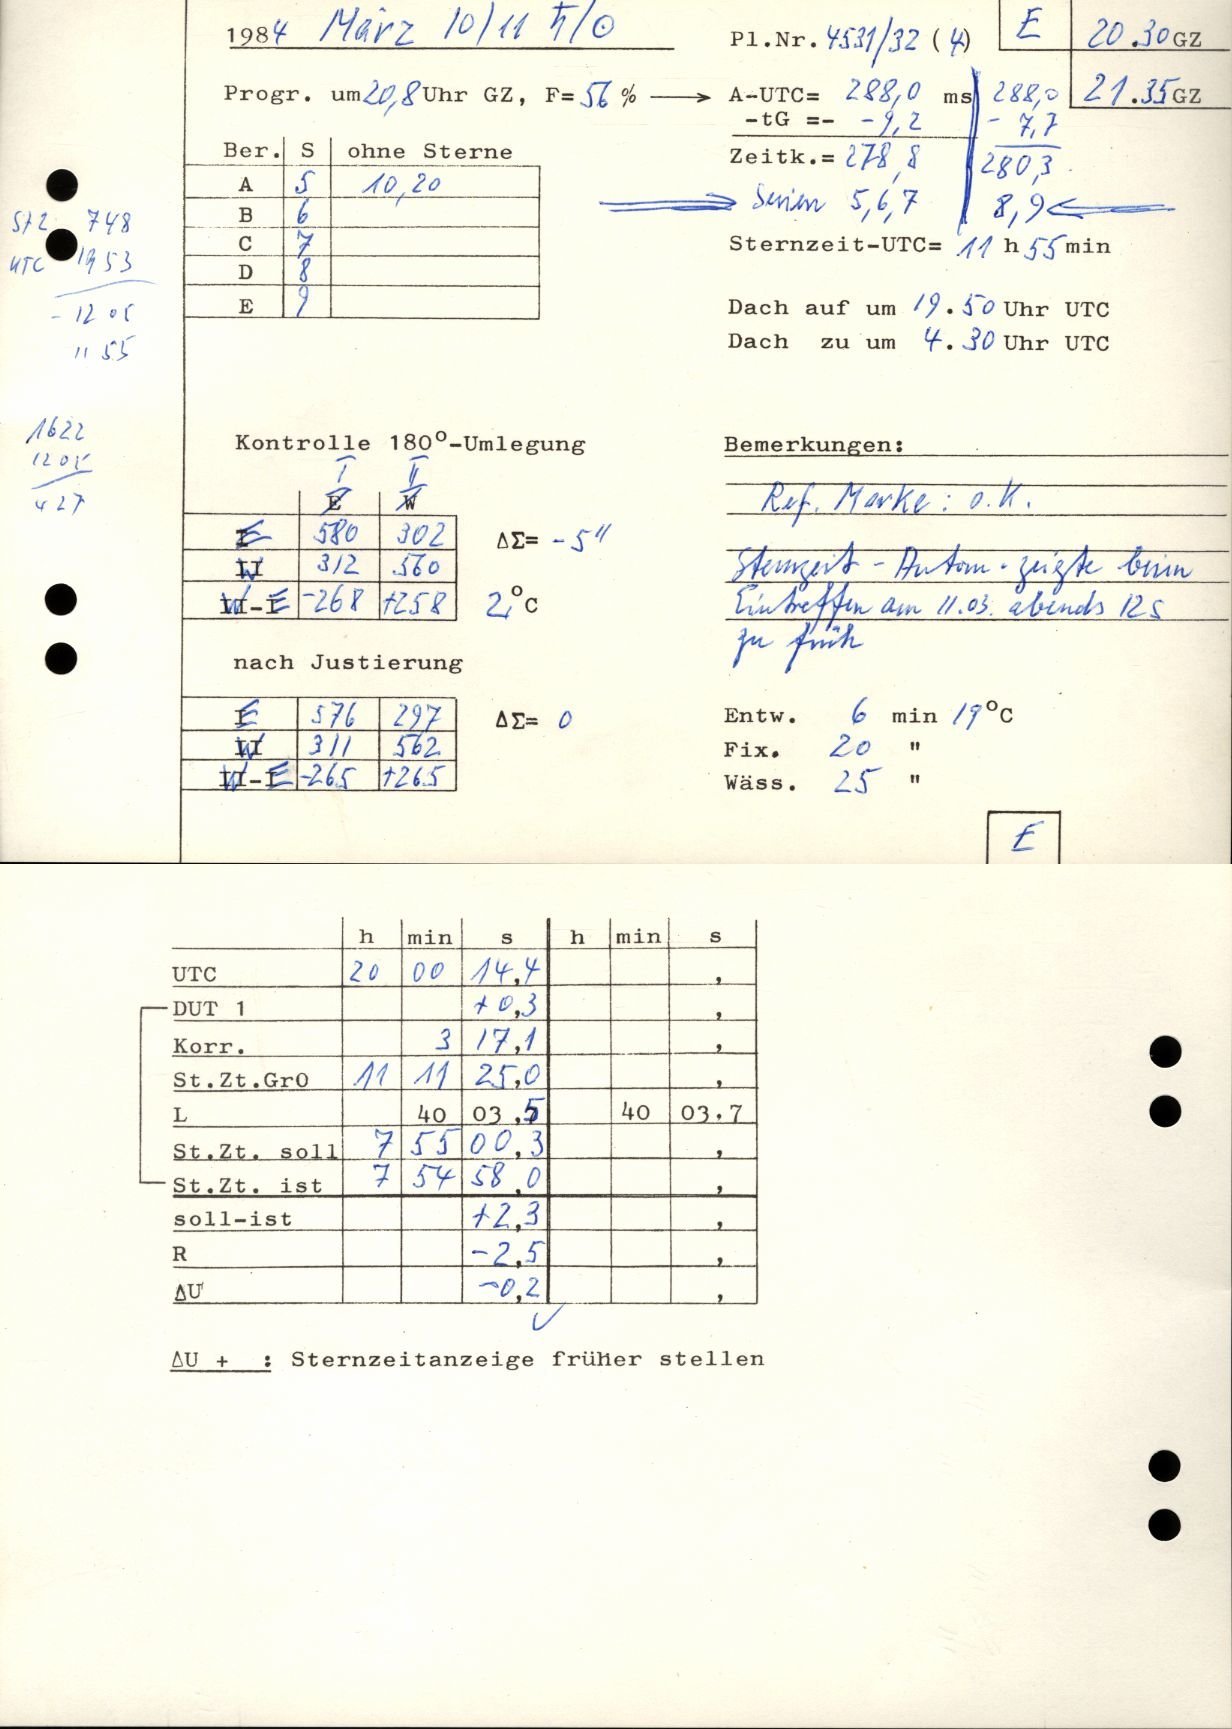 1984 März 10/11 ♄/☉
Pl.Nr. 4531/32 (4)
E
20.30 GZ
21.35 GZ
Progr. um 20,8 Uhr GZ, F= 56 % → A-UTC= 288,0 ms 288,0
-tG =- -9,2 - 7,7
Zeitk.= 278,8 280,3
Serien 5,6,7 8,9
Sternzeit-UTC= 11 h 55 min
Ber. S ohne Sterne
A 5 10,20
B 6
C 7
D 8
E 9
StZ 748
UTC 1953
- 12 05
11 55
Dach auf um 19.50 Uhr UTC
Dach zu um 4.30 Uhr UTC
1622
1205
427
Kontrolle 180°-Umlegung
I II
E W
I E 580 302 ΔΣ= -5"
II W 312 560
II-I W-E -268 +258 2,°C
nach Justierung
I E 576 297 ΔΣ= 0
II W 311 562
II-I W-E -265 +265
Bemerkungen:
Ref. Marke: o.K.
Sternzeit - Autom. zeigte beim
Eintreffen am 11.03. abends 12s
zu früh
Entw. 6 min 19°C
Fix. 20 "
Wäss. 25 "
E
h min s h min s
UTC 20 00 14,4 ,
DUT 1 +0,3 ,
Korr. 3 17,1 ,
St.Zt.Gr0 11 11 25,0 ,
L 40 03,5 40 03.7
St.Zt. soll 7 55 00,3 ,
St.Zt. ist 7 54 58,0 ,
soll-ist +2,3 ,
R -2,5 ,
ΔU -0,2 ,
ΔU + : Sternzeitanzeige früher stellen